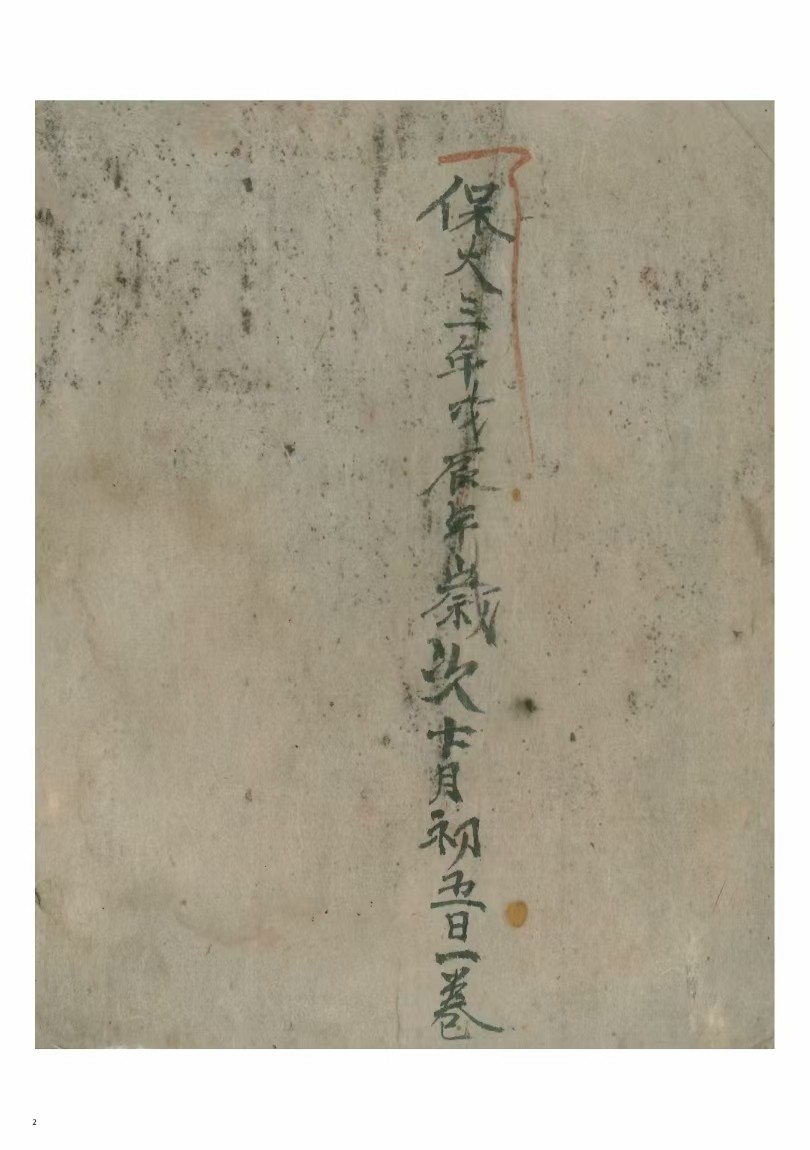 保大三年戊辰年歲次十月初五日一卷
2